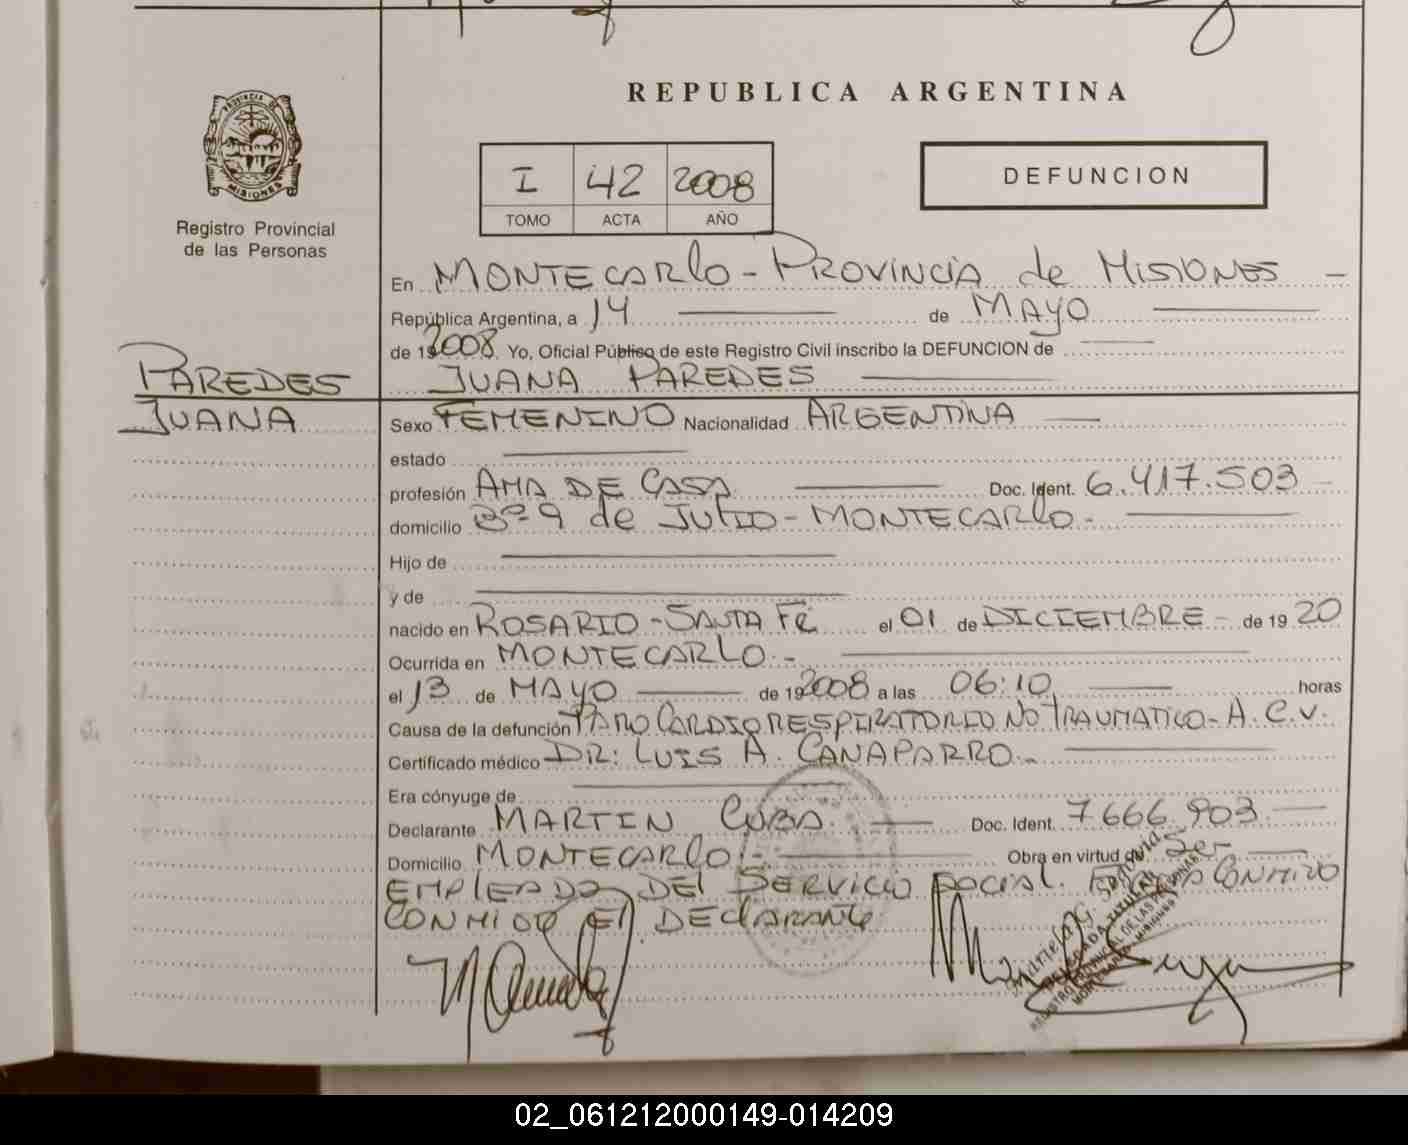 REPUBLICA ARGENTINA
PROVINCIA DE
MISIONES
Registro Provincial
de las Personas
I 42 2008
TOMO ACTA AÑO
DEFUNCION
En MONTECARLO - PROVINCIA de MISIONES -
República Argentina, a 14 de MAYO
de 192008. Yo, Oficial Público de este Registro Civil inscribo la DEFUNCION de
JUANA PAREDES
PAREDES
JUANA
Sexo FEMENINO Nacionalidad ARGENTINA
estado
profesión AMA DE CASA Doc. Ident. 6.417.503 -
domicilio Bº 9 de JULIO - MONTECARLO -
Hijo de
y de
nacido en ROSARIO - SANTA FÉ el 01 de DICIEMBRE - de 19 20
Ocurrida en MONTECARLO -
el 13 de MAYO de 192008 a las 06:10 horas
Causa de la defunción PARO CARDIORESPIRATORIO NO TRAUMATICO - A.C.V.
Certificado médico DR: LUIS A. CANAPARRO -
Era cónyuge de
Declarante MARTIN CUBA Doc. Ident. 7666903
Domicilio MONTECARLO - Obra en virtud de Ser
EMPLEADO DEL SERVICIO SOCIAL. CONMIGO
CONMIGO El DEClARANte
DELEGADA TITULAR
REGISTRO PROVINCIAL DE LAS PERSONAS
02_061212000149-014209